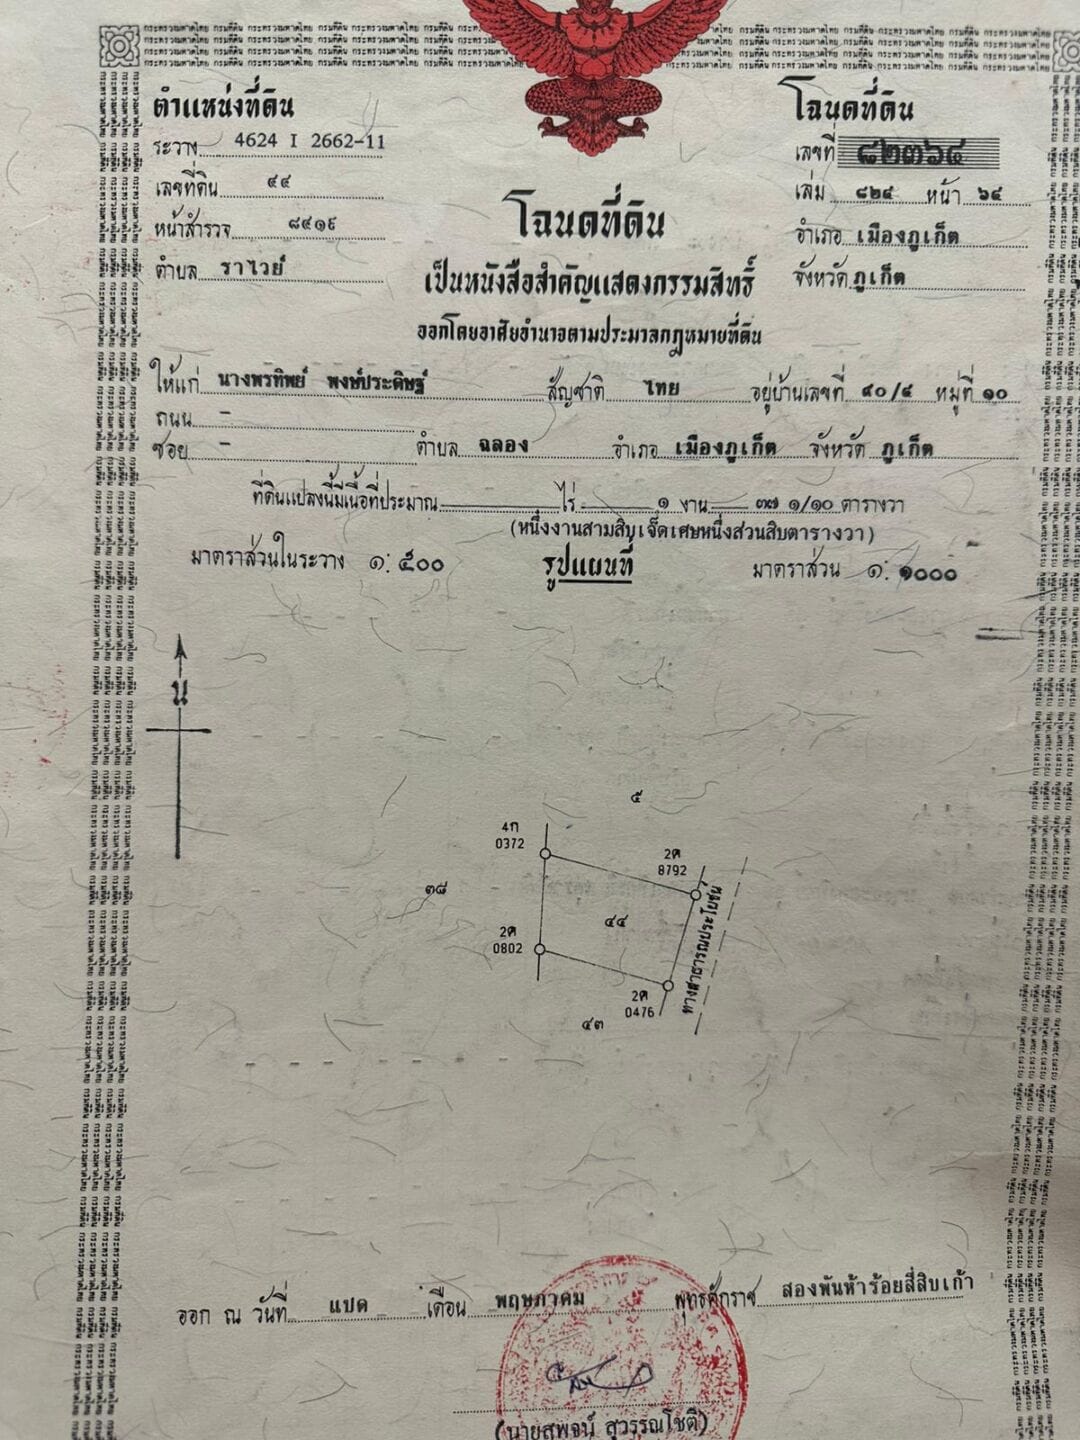 ตำแหน่งที่ดิน
ระวาง 4624 I 2662-11
เลขที่ดิน ๔๔
หน้าสำรวจ ๘๔๑๙
ตำบล ราไวย์
โฉนดที่ดิน
เลขที่ ๘๒๓๖๔
เล่ม ๘๒๔ หน้า ๖๔
อำเภอ เมืองภูเก็ต
จังหวัด ภูเก็ต
โฉนดที่ดิน
เป็นหนังสือสำคัญแสดงกรรมสิทธิ์
ออกโดยอาศัยอำนาจตามประมวลกฎหมายที่ดิน
ให้แก่ นางพรทิพย์ พงษ์ประดิษฐ์ สัญชาติ ไทย อยู่บ้านเลขที่ ๔๐/๔ หมู่ที่ ๑๐
ถนน -
ซอย - ตำบล ฉลอง อำเภอ เมืองภูเก็ต จังหวัด ภูเก็ต
ที่ดินแปลงนี้มีเนื้อที่ประมาณ ไร่ ๑ งาน ๓๗ ๑/๑๐ ตารางวา
(หนึ่งงานสามสิบเจ็ดเศษหนึ่งส่วนสิบตารางวา)
มาตราส่วนในระวาง ๑:๕๐๐ รูปแผนที่ มาตราส่วน ๑:๑๐๐๐
น
๕
4ก
0372
2ค
8792
๓๘
๔๔
2ค
0802
ทางสาธารณประโยชน์
2ค
0476
๔๓
ออก ณ วันที่ แปด เดือน พฤษภาคม พุทธศักราช สองพันห้าร้อยสี่สิบเก้า
(นายสุพจน์ สุวรรณโชติ)